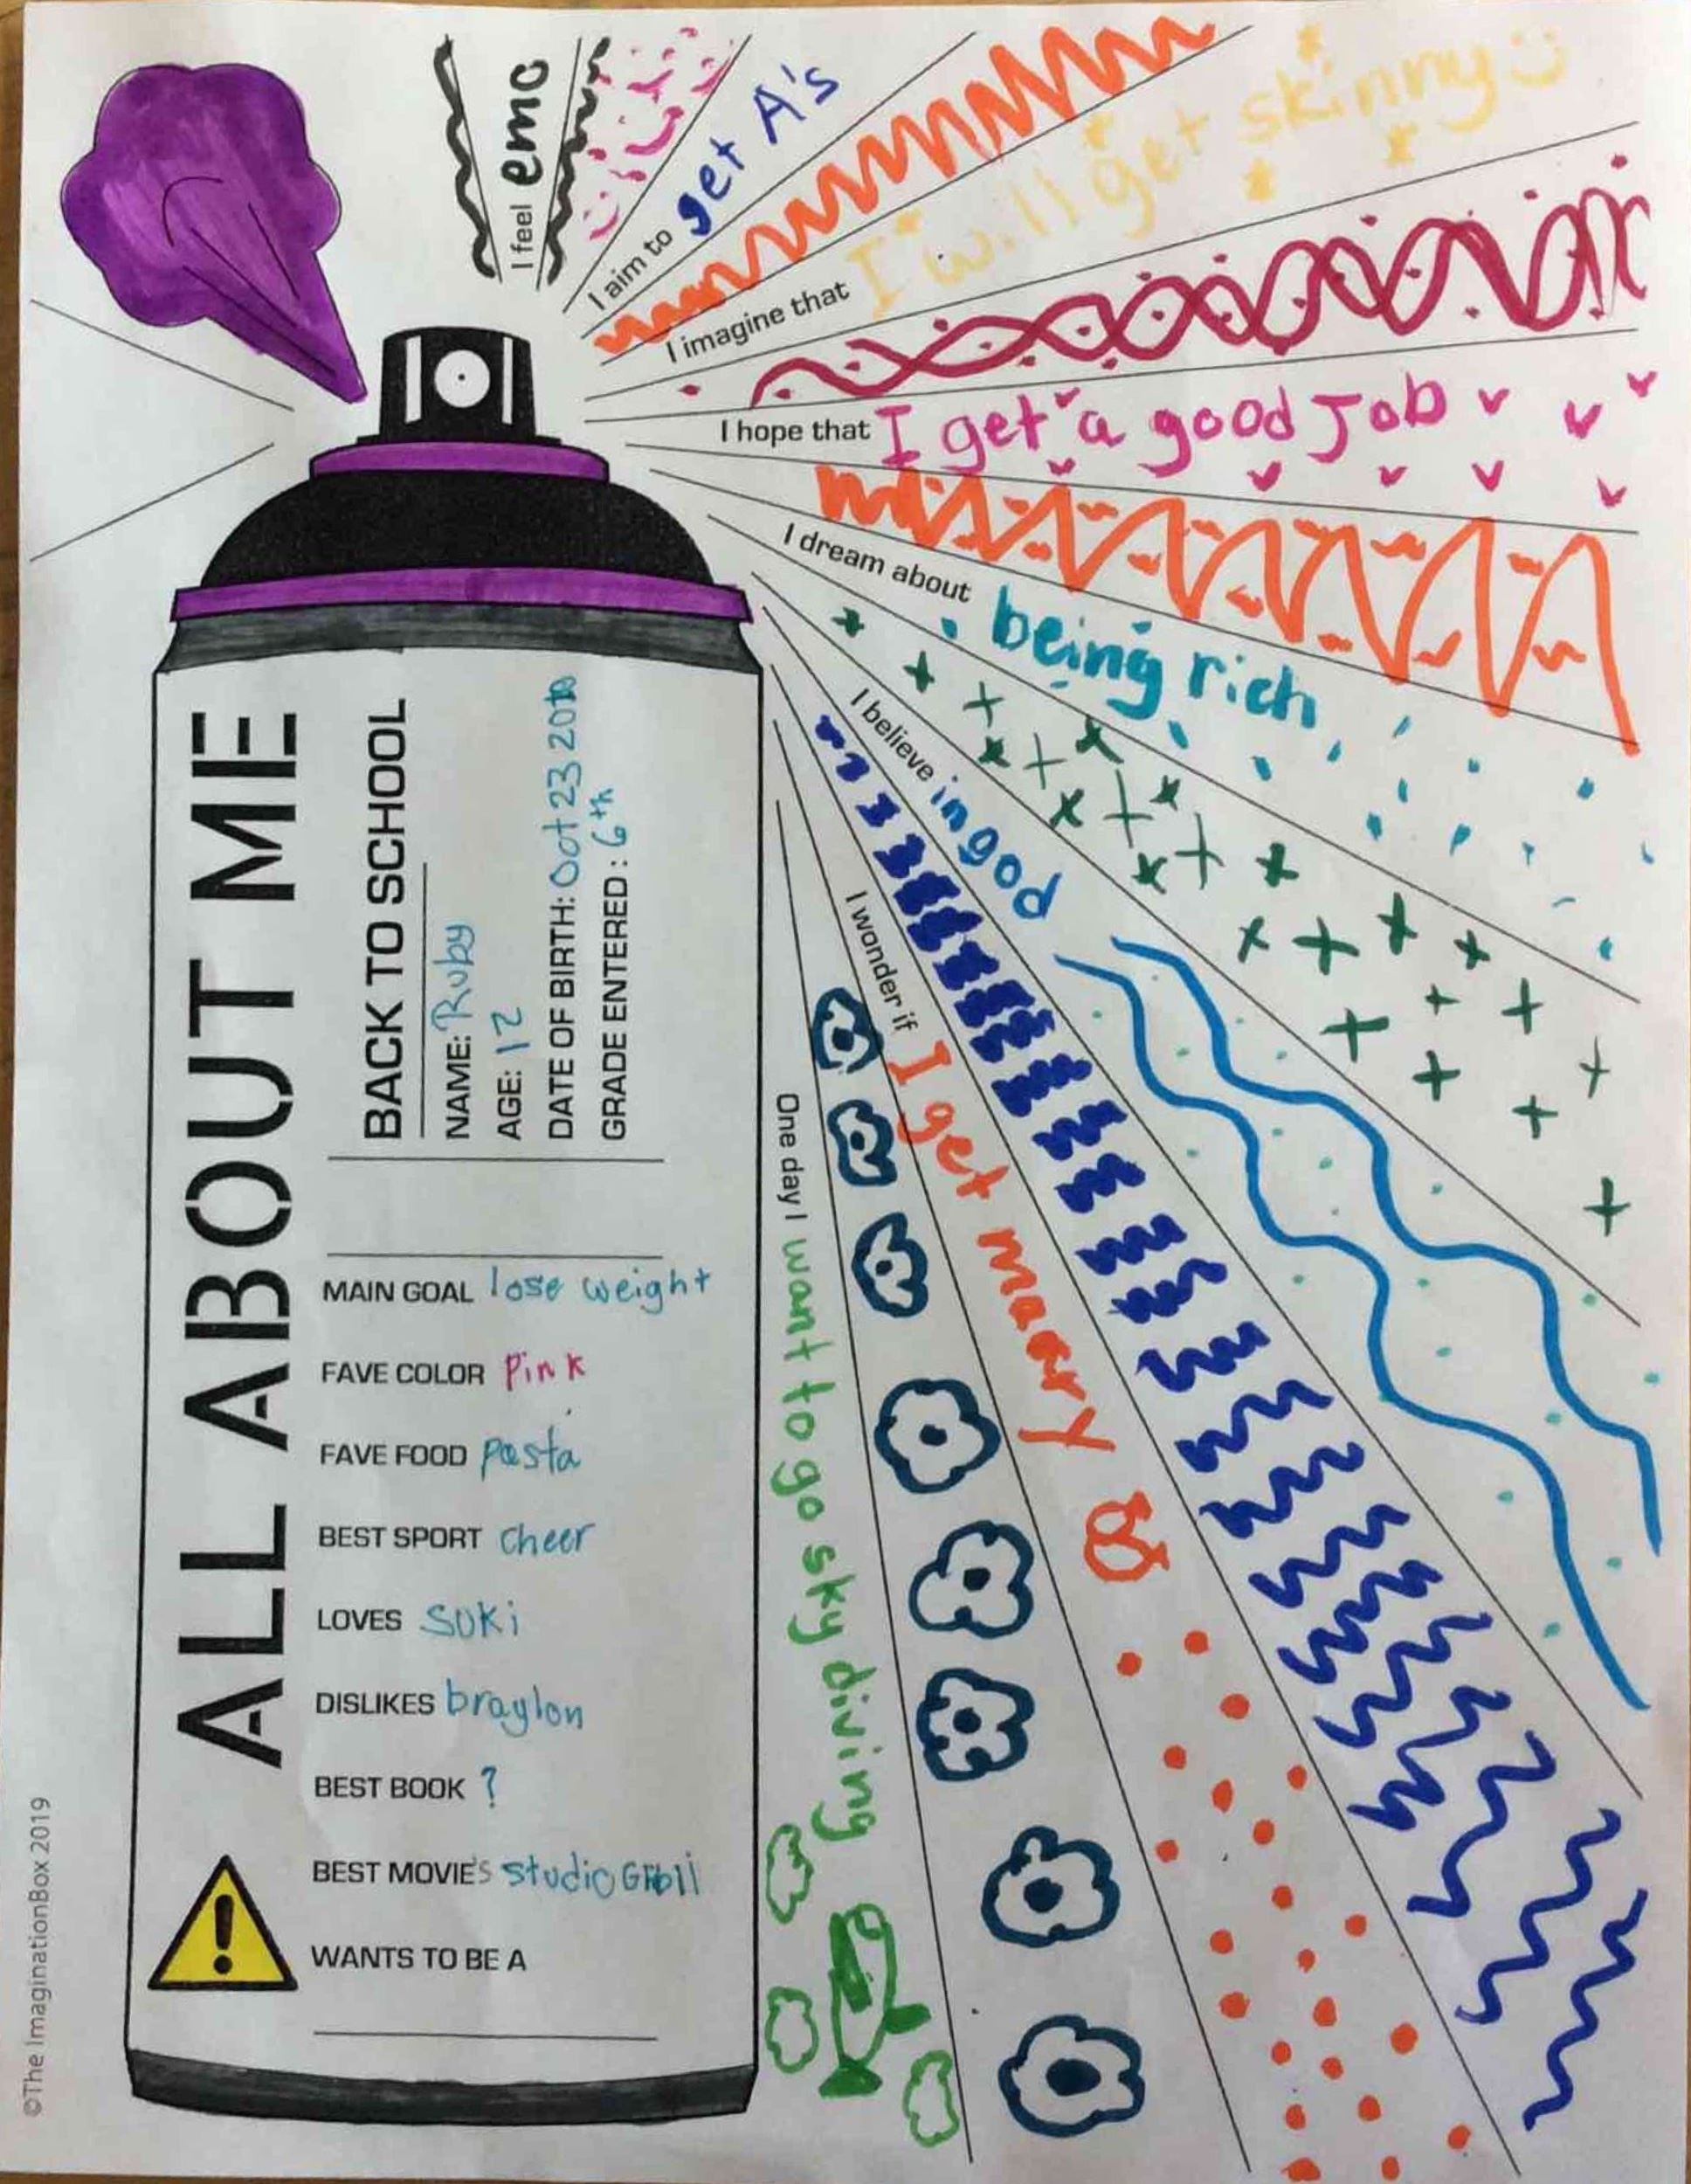 I feel emo
I aim to get A's
I imagine that I will get skinny
I hope that I get a good Job
I dream about being rich
I believe in god
I wonder if I get marry
One day I want to go sky diving
ALL ABOUT ME
BACK TO SCHOOL
NAME: Ruby
AGE: 12
DATE OF BIRTH: Oct 23
GRADE ENTERED: 6th
MAIN GOAL lose weight
FAVE COLOR Pink
FAVE FOOD pasta
BEST SPORT cheer
LOVES Suki
DISLIKES braylon
BEST BOOK ?
BEST MOVIE's studio
WANTS TO BE A
©The ImaginationBox 2019